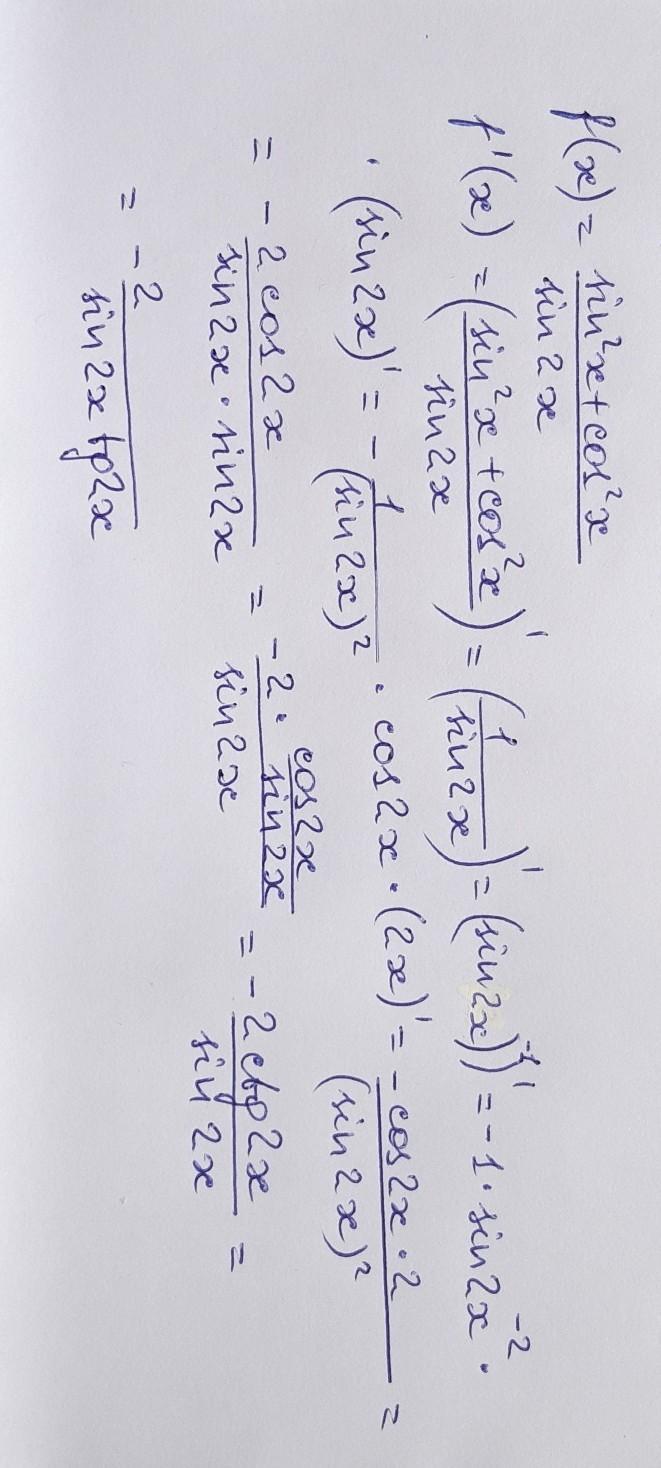 f(x) = (sin²x + cos²x) / (sin 2x)
f'(x) = ((sin²x + cos²x) / (sin 2x))' = (1 / (sin 2x))' = ((sin 2x)⁻¹)' = -1 · sin 2x⁻² ·
· (sin 2x)' = - 1 / (sin 2x)² · cos 2x · (2x)' = (-cos 2x · 2) / (sin 2x)² =
= - (2 cos 2x) / (sin 2x · sin 2x) = (-2 · (cos 2x) / (sin 2x)) / (sin 2x) = - (2 ctg 2x) / (sin 2x) =
= - 2 / (sin 2x tg 2x)